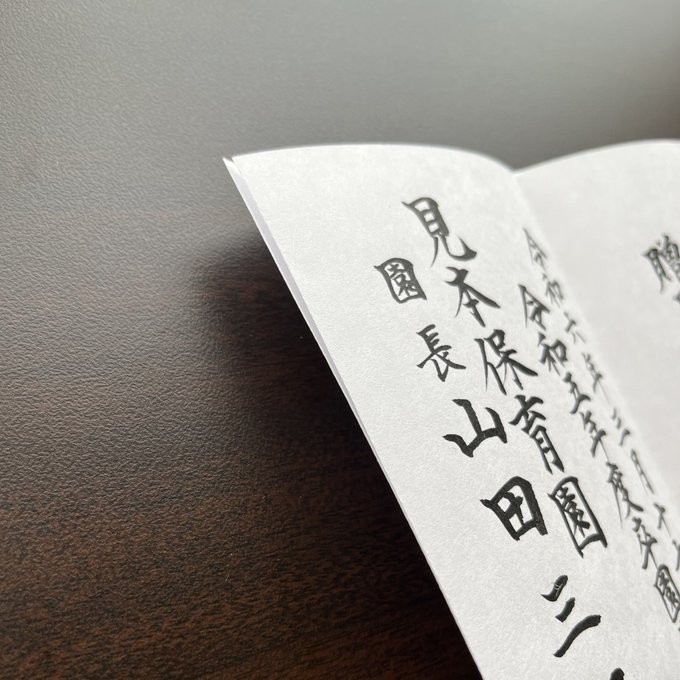 贈
令和六年三月十
令和五年度卒園
見本保育園
園長 山田三